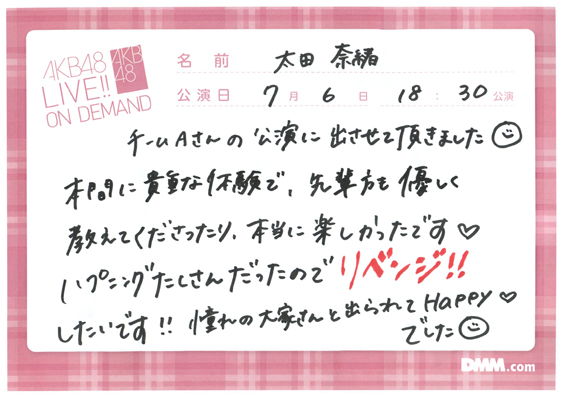 AKB48
LIVE!!
ON DEMAND
AKB
48
名前 太田 奈緒
公演日 7月 6日 18:30公演
チームAさんの公演に出させて頂きました
本間に貴重な体験で、先輩方も優しく
教えてくださったり、本当に楽しかったです♡
ハプニングたくさんだったのでリベンジ!!
したいです!! 憧れの大家さんと出られてHAPPY♡
でした
DMM.com